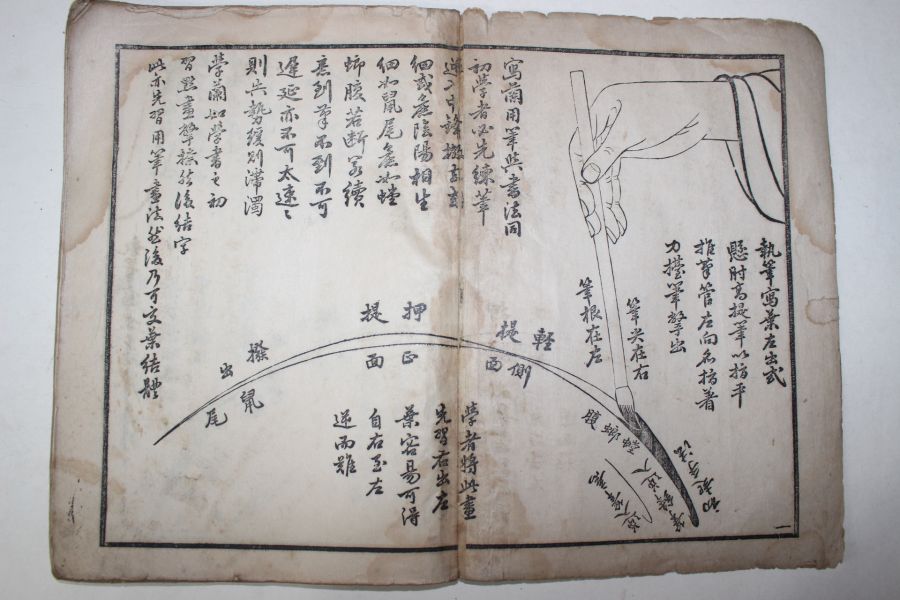 執筆寫葉左出式
懸肘高提筆以指平
推筆管左向名指着
力擡筆撆出
筆尖在右
筆根在左
寫蘭用筆與書法同
初學者必先練筆
細或無陰陽相生
細如鼠尾無如螳
螂腹若斷若續
意到筆不到不可
遲延亦不可太速々
則失勢緩則滯濁
學蘭如學書之初
習點畫撆捺然後結字
此亦先習用筆畫法然後乃可交葉結體
輕側
提面
押正
提面
撥鼠
出尾
螳螂腹
學者將此畫
先習右出左
葉容易可得
自右至左
逆而難
一